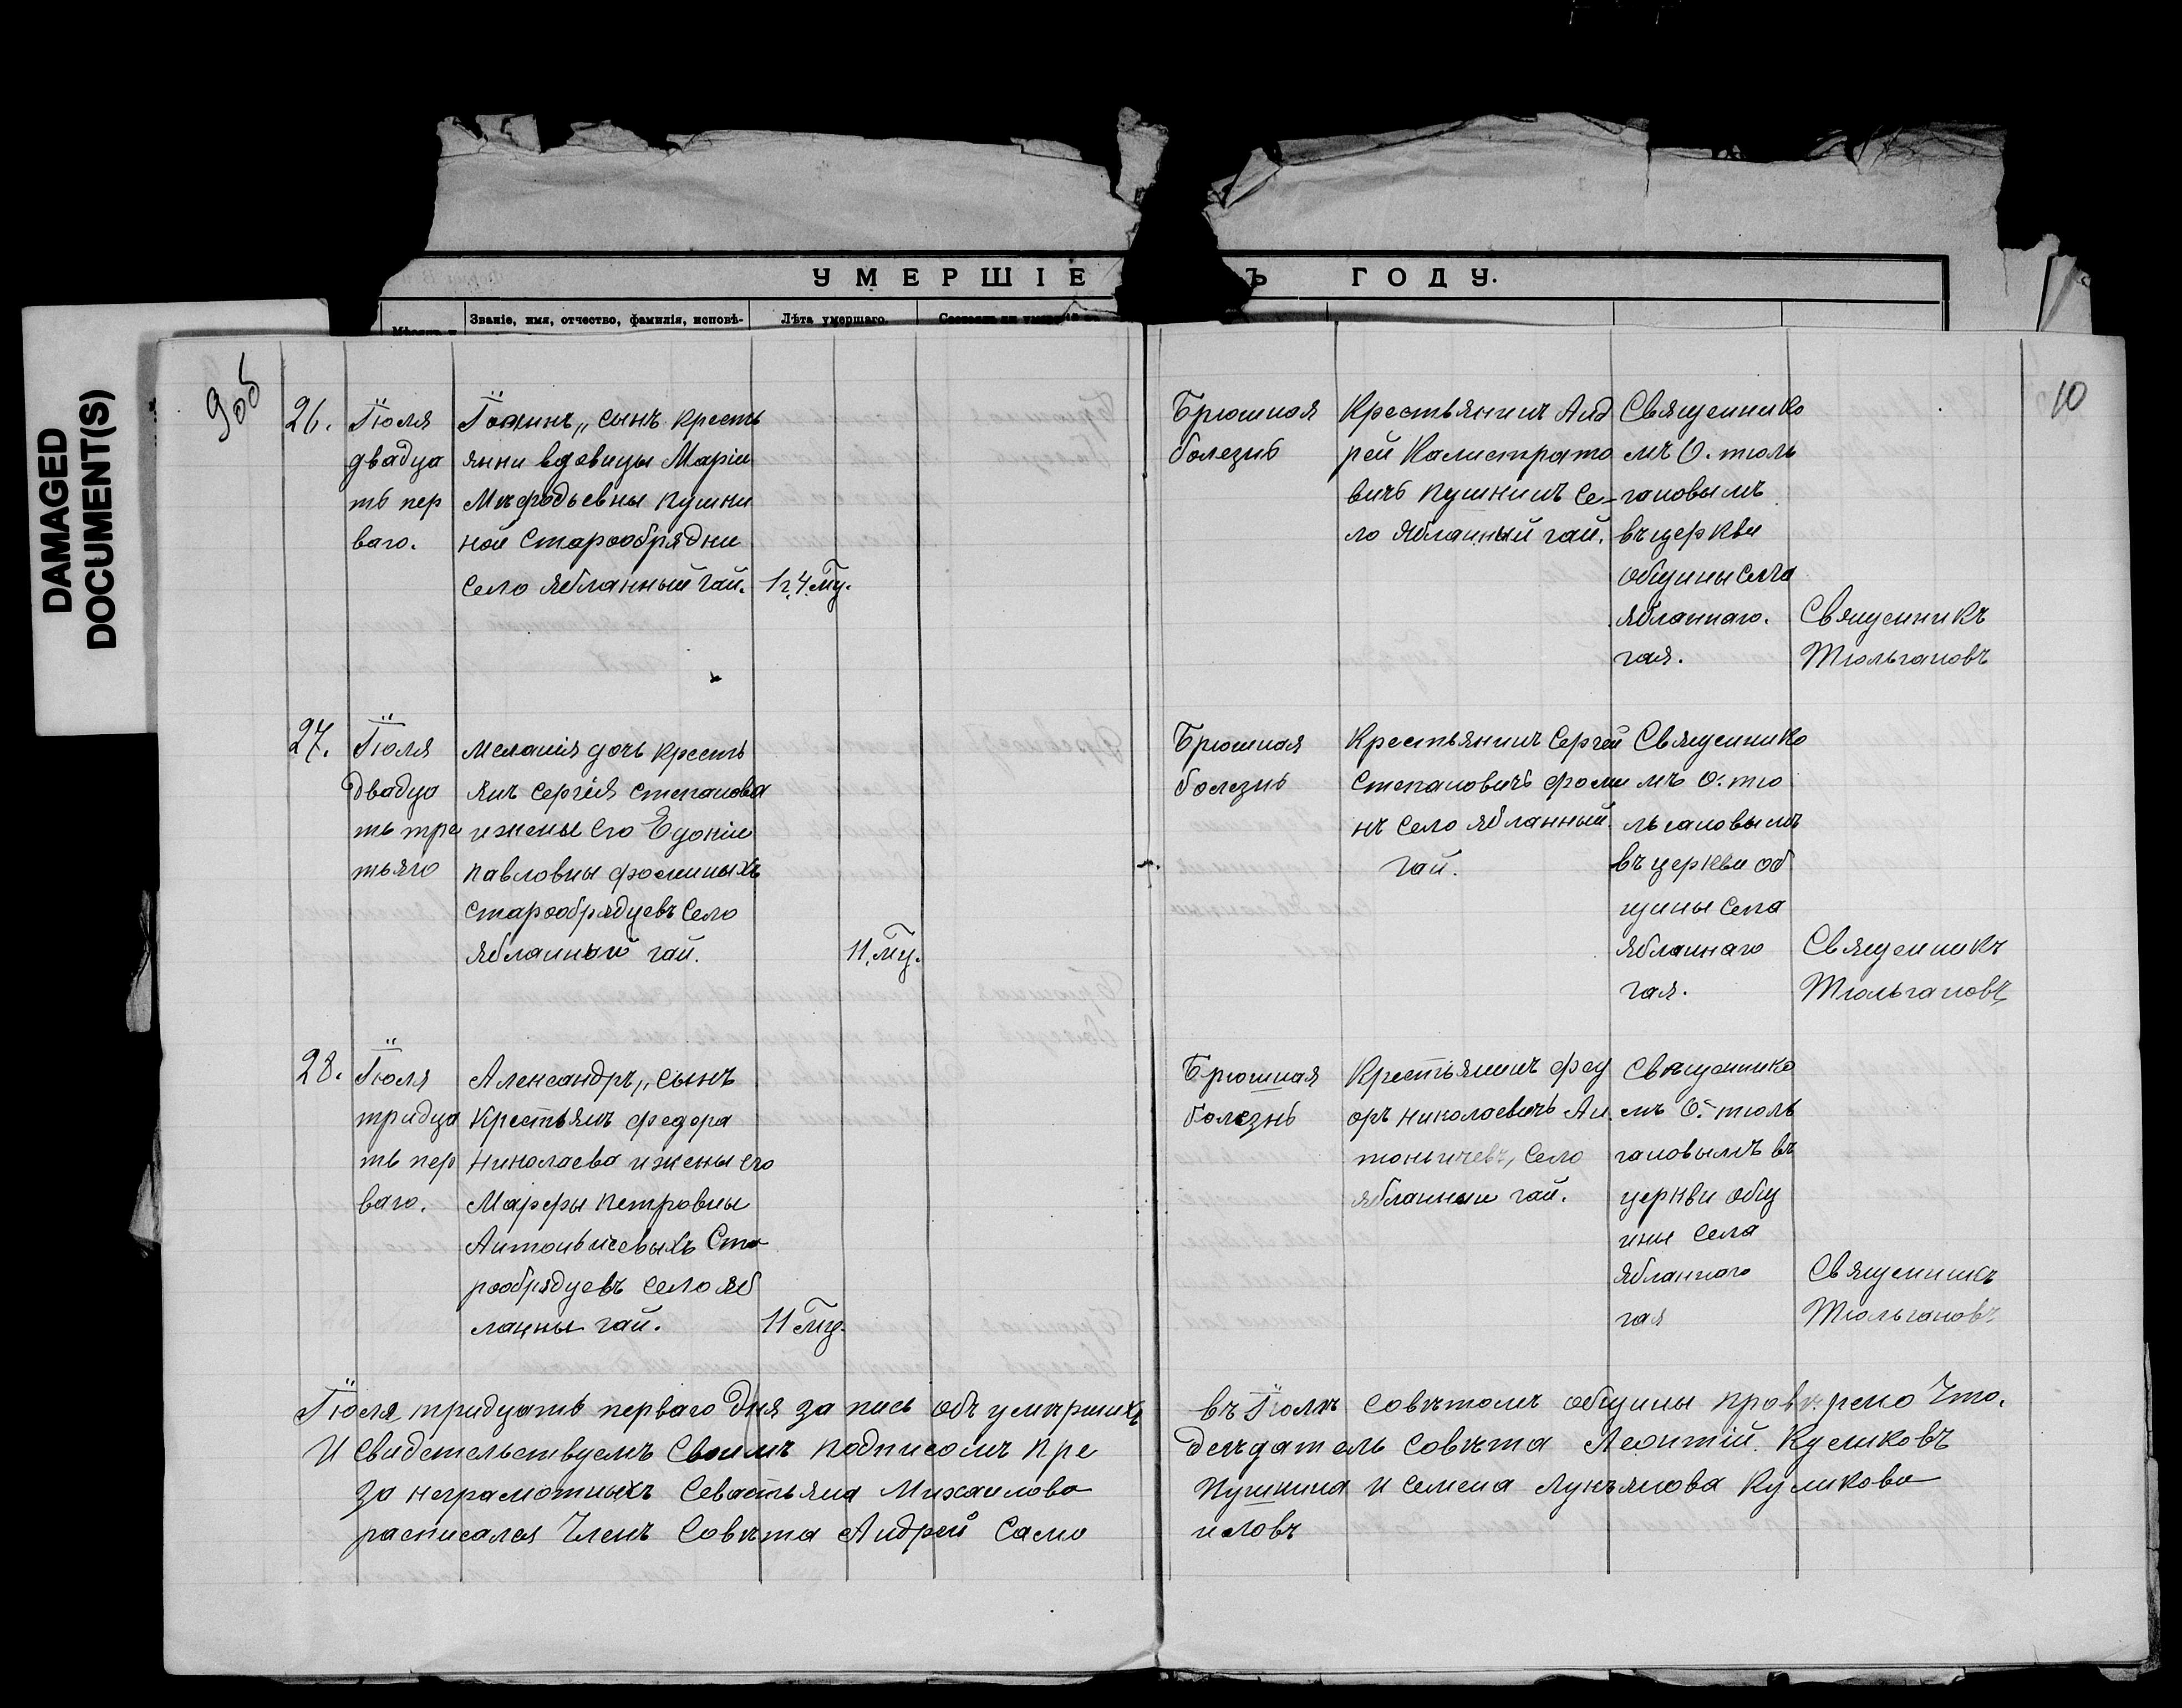 DAMAGED
DOCUMENT(S)
УМЕРШІЕ Ъ ГОДУ.
Званіе, имя, отчество, фамилія, исповѣ-
Лѣта умершаго.
9об
10
26.
Іюля
двадца
ть пер
ваго.
сынъ кресть
янки вдовицы Маріи
Мѣфодьевны Пушки
ной Старообрядки
Село Ябланный Гай.
1 г. 4. мц.
Брюшная
болезнь
Крестьянинъ Анд
рей Калистрато
вичъ Пушкинъ Се-
ло Ябланный гай.
Священнико
мъ О. тюль
гановымъ
въ церкви
общины Села
Ябланнаго.
гая.
Священникъ
Тюльгановъ
27.
Іюля
двадца
ть тре
тьяго
Меланія дочь кресть
янъ Сергія Степанова
и жены его Едокіи
Павловны Фоминыхъ
Старообрядцевъ Село
Ябланный гай.
11. мц.
Брюшная
болезнь
Крестьянинъ Сергей
Степановичъ Фоми
нъ Село Ябланный
Гай.
Священнико
мъ О. тю
льгановымъ
въ церкви об
щины Села
Ябланнаго
гая.
Священникъ
Тюльгановъ
28.
Іюля
тридца
ть пер
ваго.
Александръ,, сынъ
Крестьянъ Федора
Николаева и жены его
Марфы Петровны
Антоньичевыхъ Ста
рообрядцевъ Село Яб
ланны гай.
11 мц.
Брюшная
болезнь
Крестьянинъ Фед
оръ Николаевичъ Ан
тоньичевъ, Село
Ябланный гай.
Священнико
мъ О. тюль
гановымъ въ
церкви общ
ины Села
Ябланнаго
гая
Священникъ
Тюльгановъ
Іюля тридцать перваго дня запись объ умѣршихъ въ Іюлѣ Совѣтомъ общины провѣрено Что.
И Свидетельствуемъ Своимъ подписомъ Пре дсѣдатель Совѣта Леонтій Куликовъ
За неграмотныхъ Севастьяна Михаилова Пушкина и Семена Лукьянова Куликова
расписался Членъ Совѣта Андрей Само иловъ